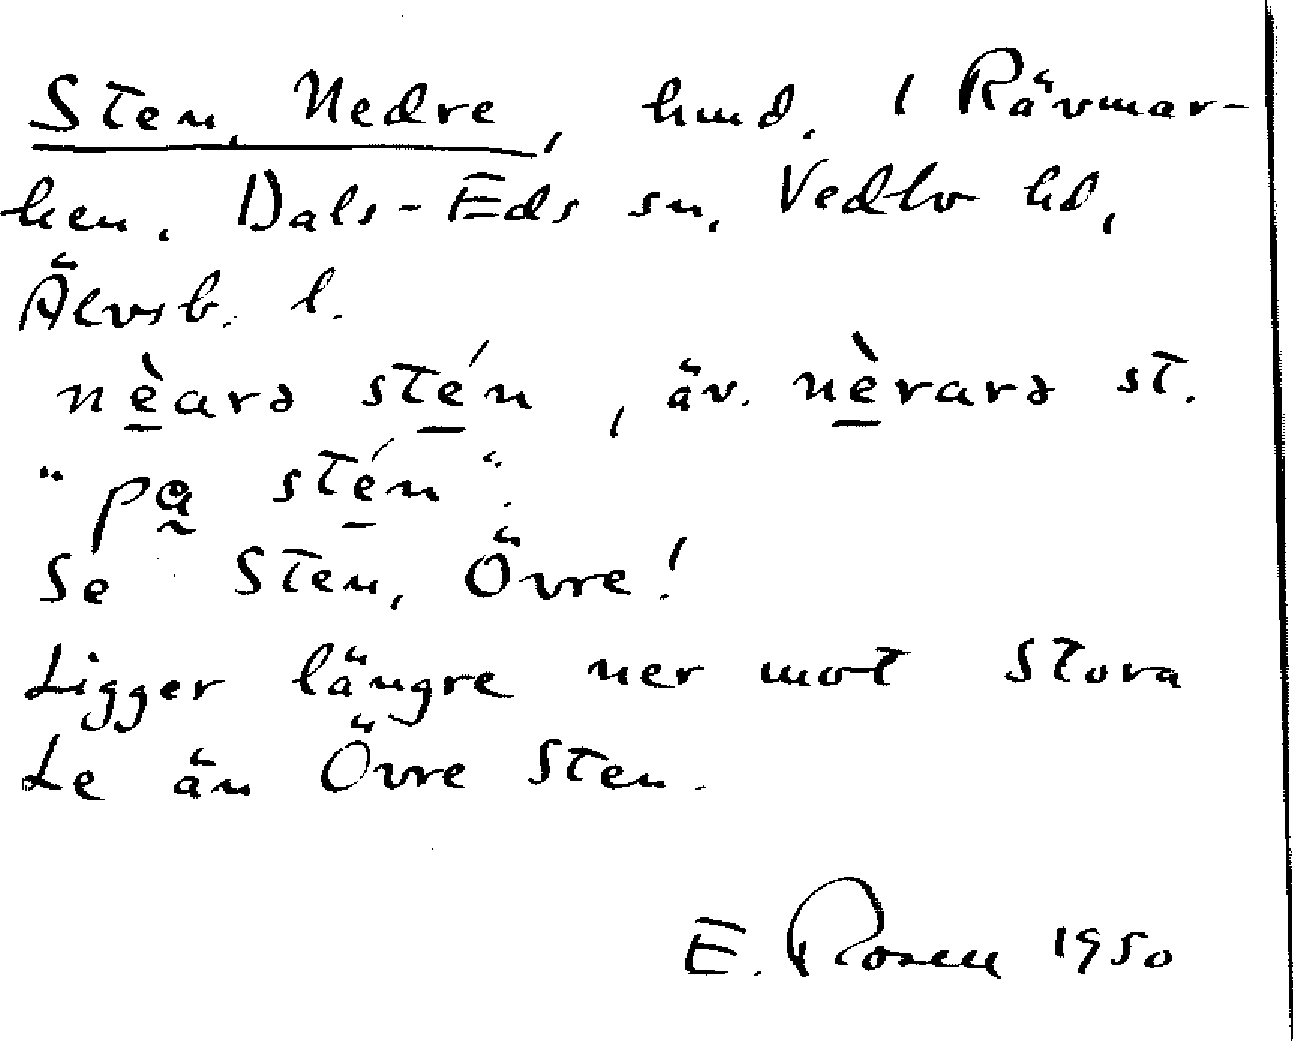 Sten, Nedre, hmd. 1 Rävmar-
ken. Dals-Eds sn, Vedbo hd,
Älvsb. l.
nèarə stén, äv. nèrarə st.
"pa stén".
Se Sten, Övre!
Ligger längre ner mot Stora
Le än Övre Sten.
E. Rosen 1950